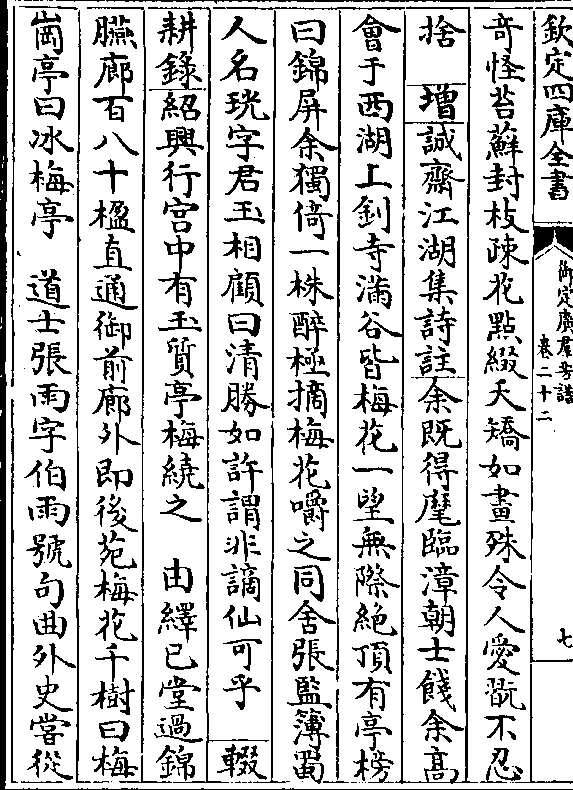 欽定四庫全書
御定廣羣芳譜
卷二十二
七
奇怪苔蘚封枝疎花點綴夭矯如畫殊令人愛翫不忍
捨　增誠齋江湖集詩註余既得麾臨漳朝士餞余高
會于西湖上劍寺滿谷皆梅花一望無際絶頂有亭榜
曰錦屏余獨倚一株醉極摘梅花嚼之同舍張監簿蜀
人名珖字君玉相顧曰清勝如許謂非謫仙可乎　輟
耕錄紹興行宫中有玉質亭梅繞之　由繹已堂過錦
臙廊百八十楹直通御前廊外即後苑梅花千樹曰梅
崗亭曰冰梅亭　道士張雨字伯雨號句曲外史嘗從